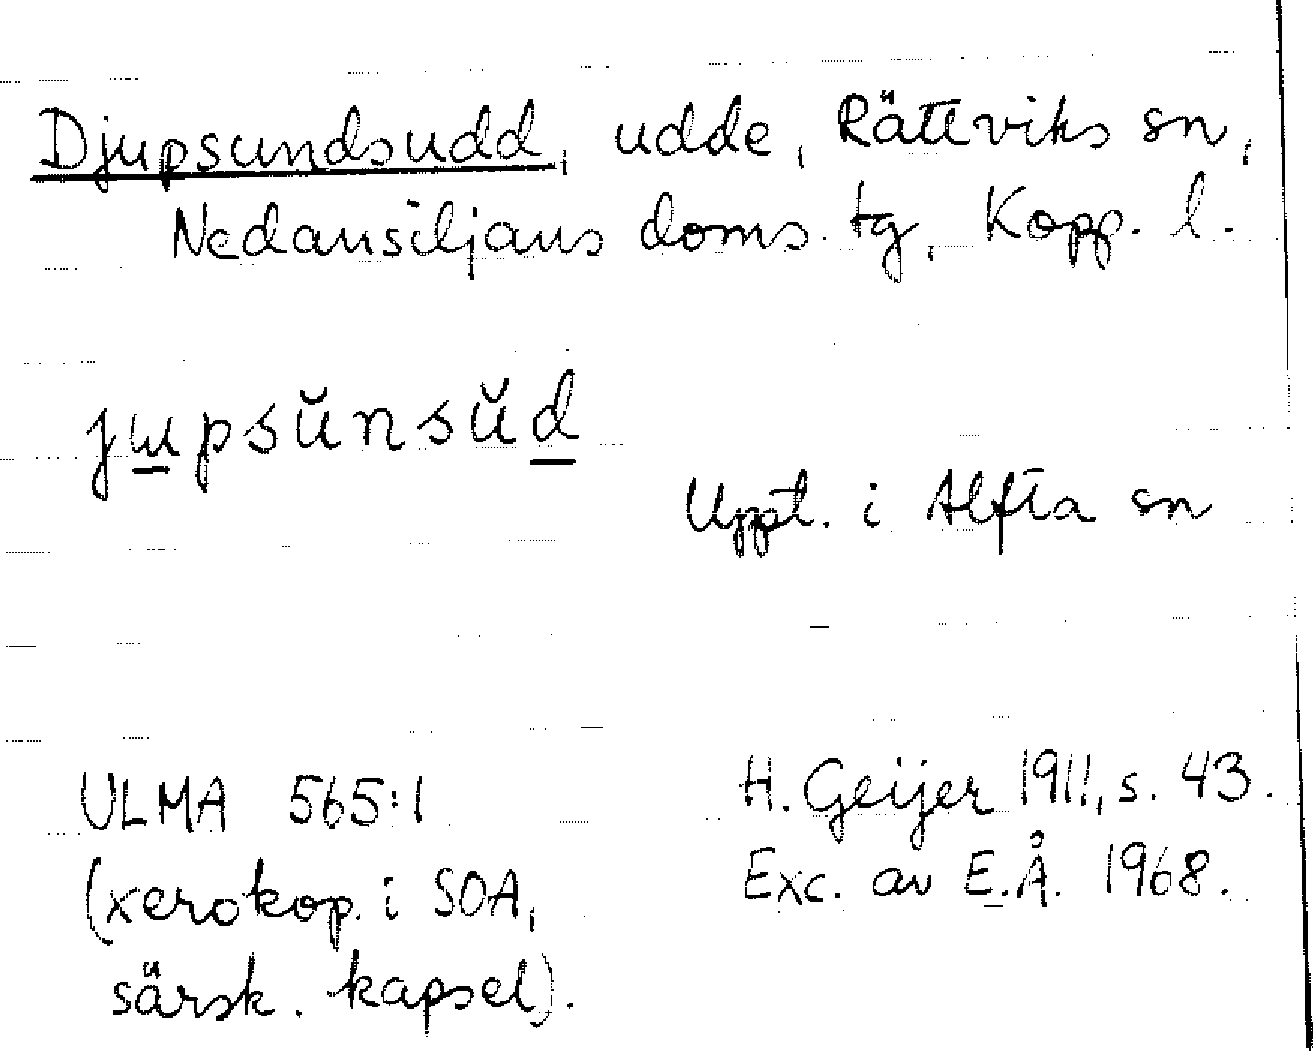 Djupsundsudd, udde, Rättviks sn,
Nedansiljans doms. tg, Kopp. l.
jɯpsŭnsŭd
Uppt. i Alfta sn
ULMA 565:1
(xerokop. i SOA,
särsk. kapsel).
H. Geijer 1911, s. 43.
Exc. av E.Å. 1968.